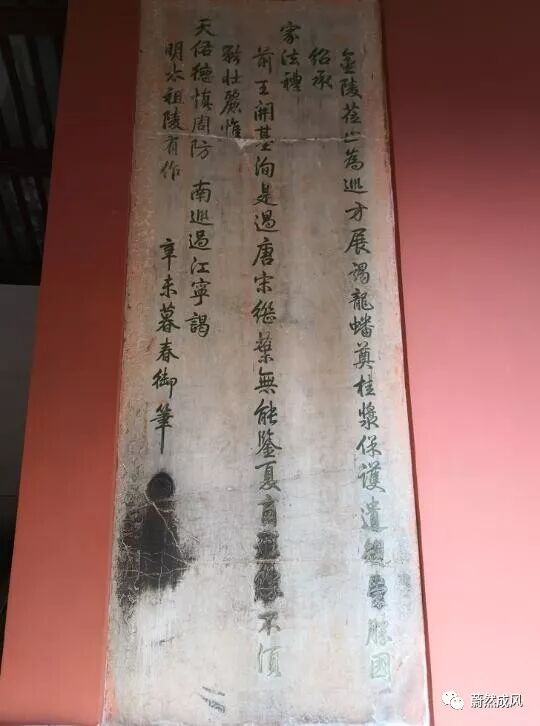 金陵莅止為巡方展謁龍蟠奠桂漿保護遺崇勝國
紹承
家法禮
前王開基洵是過唐宋繼葉無能鑒夏商不須
矜壯麗惟
天佑德慎周防 南巡過江寧謁
明太祖陵有作
辛未暮春御筆
蔚然成风